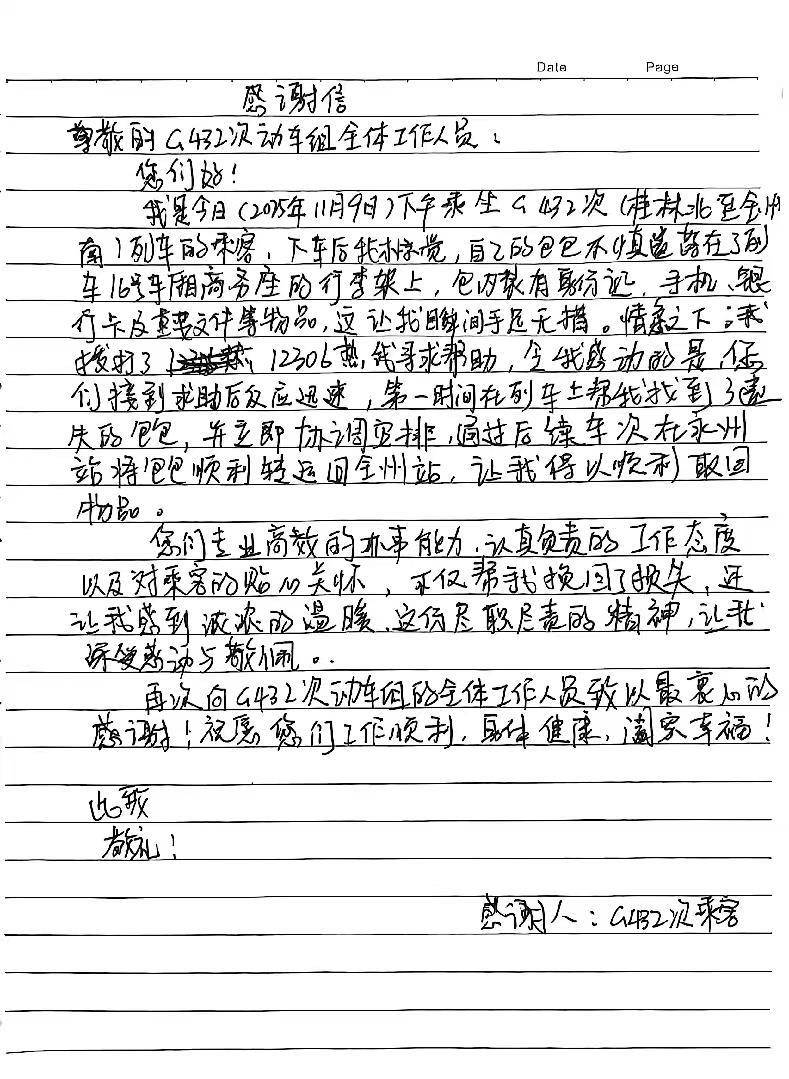 Date Page
感谢信
尊敬的G432次动车组全体工作人员：
您们好！
我是今日（2025年11月9日）下午乘坐G432次（桂林北至全州
南）列车的乘客，下车后我才惊觉，自己的包包不慎遗落在了列
车16号车厢商务座的行李架上，包内装有身份证、手机、银
行卡及重要文件等物品，这让我瞬间手足无措。情急之下，我
拨打了 12306热线寻求帮助，令我感动的是，您
们接到求助后反应迅速，第一时间在列车上帮我找到了遗
失的包包，并立即协调安排，通过后续车次在永州
站将包包顺利转运回全州站，让我得以顺利取回
物品。
您们专业高效的办事能力、认真负责的工作态度
以及对乘客的贴心关怀，不仅帮我挽回了损失，还
让我感到浓浓的温暖，这份尽职尽责的精神，让我
深受感动与敬佩。
再次向G432次动车组的全体工作人员致以最衷心的
感谢！祝愿您们工作顺利，身体健康，阖家幸福！
此致
敬礼！
感谢人：G432次乘客